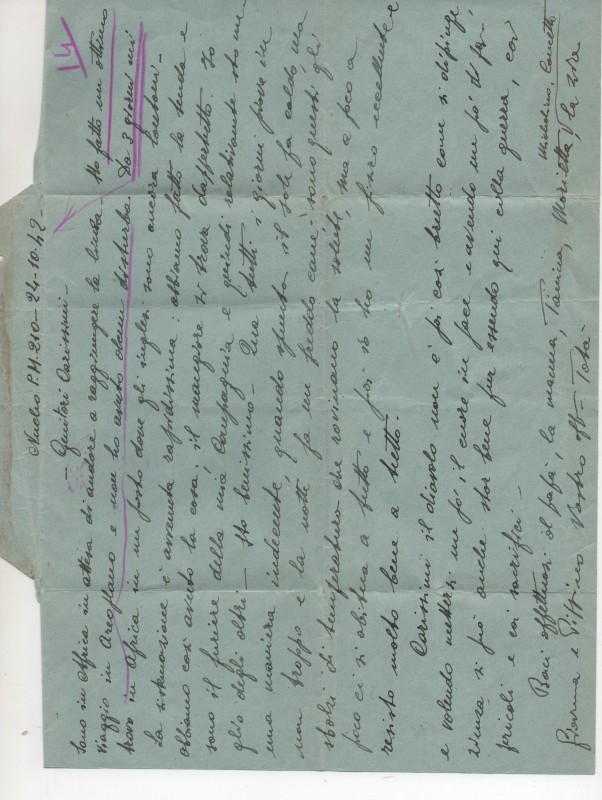 14
Nucleo P.M. 210 - 24.10.42 -
- Genitori Carissimi -
sono in Africa in attesa di andare a raggiungere la linea - Ho fatto un ottimo
viaggio in Aroplano e non ho avuto alcun disturbo. Da 3 giorni mi
trovo in Africa in un posto dove gli inglesi sono ancora lontani -
La sistemazione è avvenuta rapidissima: abbiamo fatto la tenda e
abbiamo così avuto la casa; il mangiare si trova dappertutto. Io
sono il furiere della mia Compagnia e quindi relativamente sto me-
glio degli altri - Sto benissimo - Qua tutti i giorni piove in
una maniera indecente, quando spunta il sole fa caldo, ma
non troppo e la notte fa un freddo cane; sono questi gli
sbalzi di temperatura che rovinano la salute, ma a poco a
poco ci si abitua a tutto e poi io ho un fisico eccellente e
resisto molto bene a tutto.
Carissimi il diavolo non è poi così brutto come si dipinge
e volendo metterci un pò il cuore in pace e avendo un pò di pa-
zienza si può anche star bene pur essendo qui colla guerra, coi
pericoli e coi sacrifici -
Baci affettuosi al papà, la mamma, Marietta, la zia
Giovanna e Vostro Totò